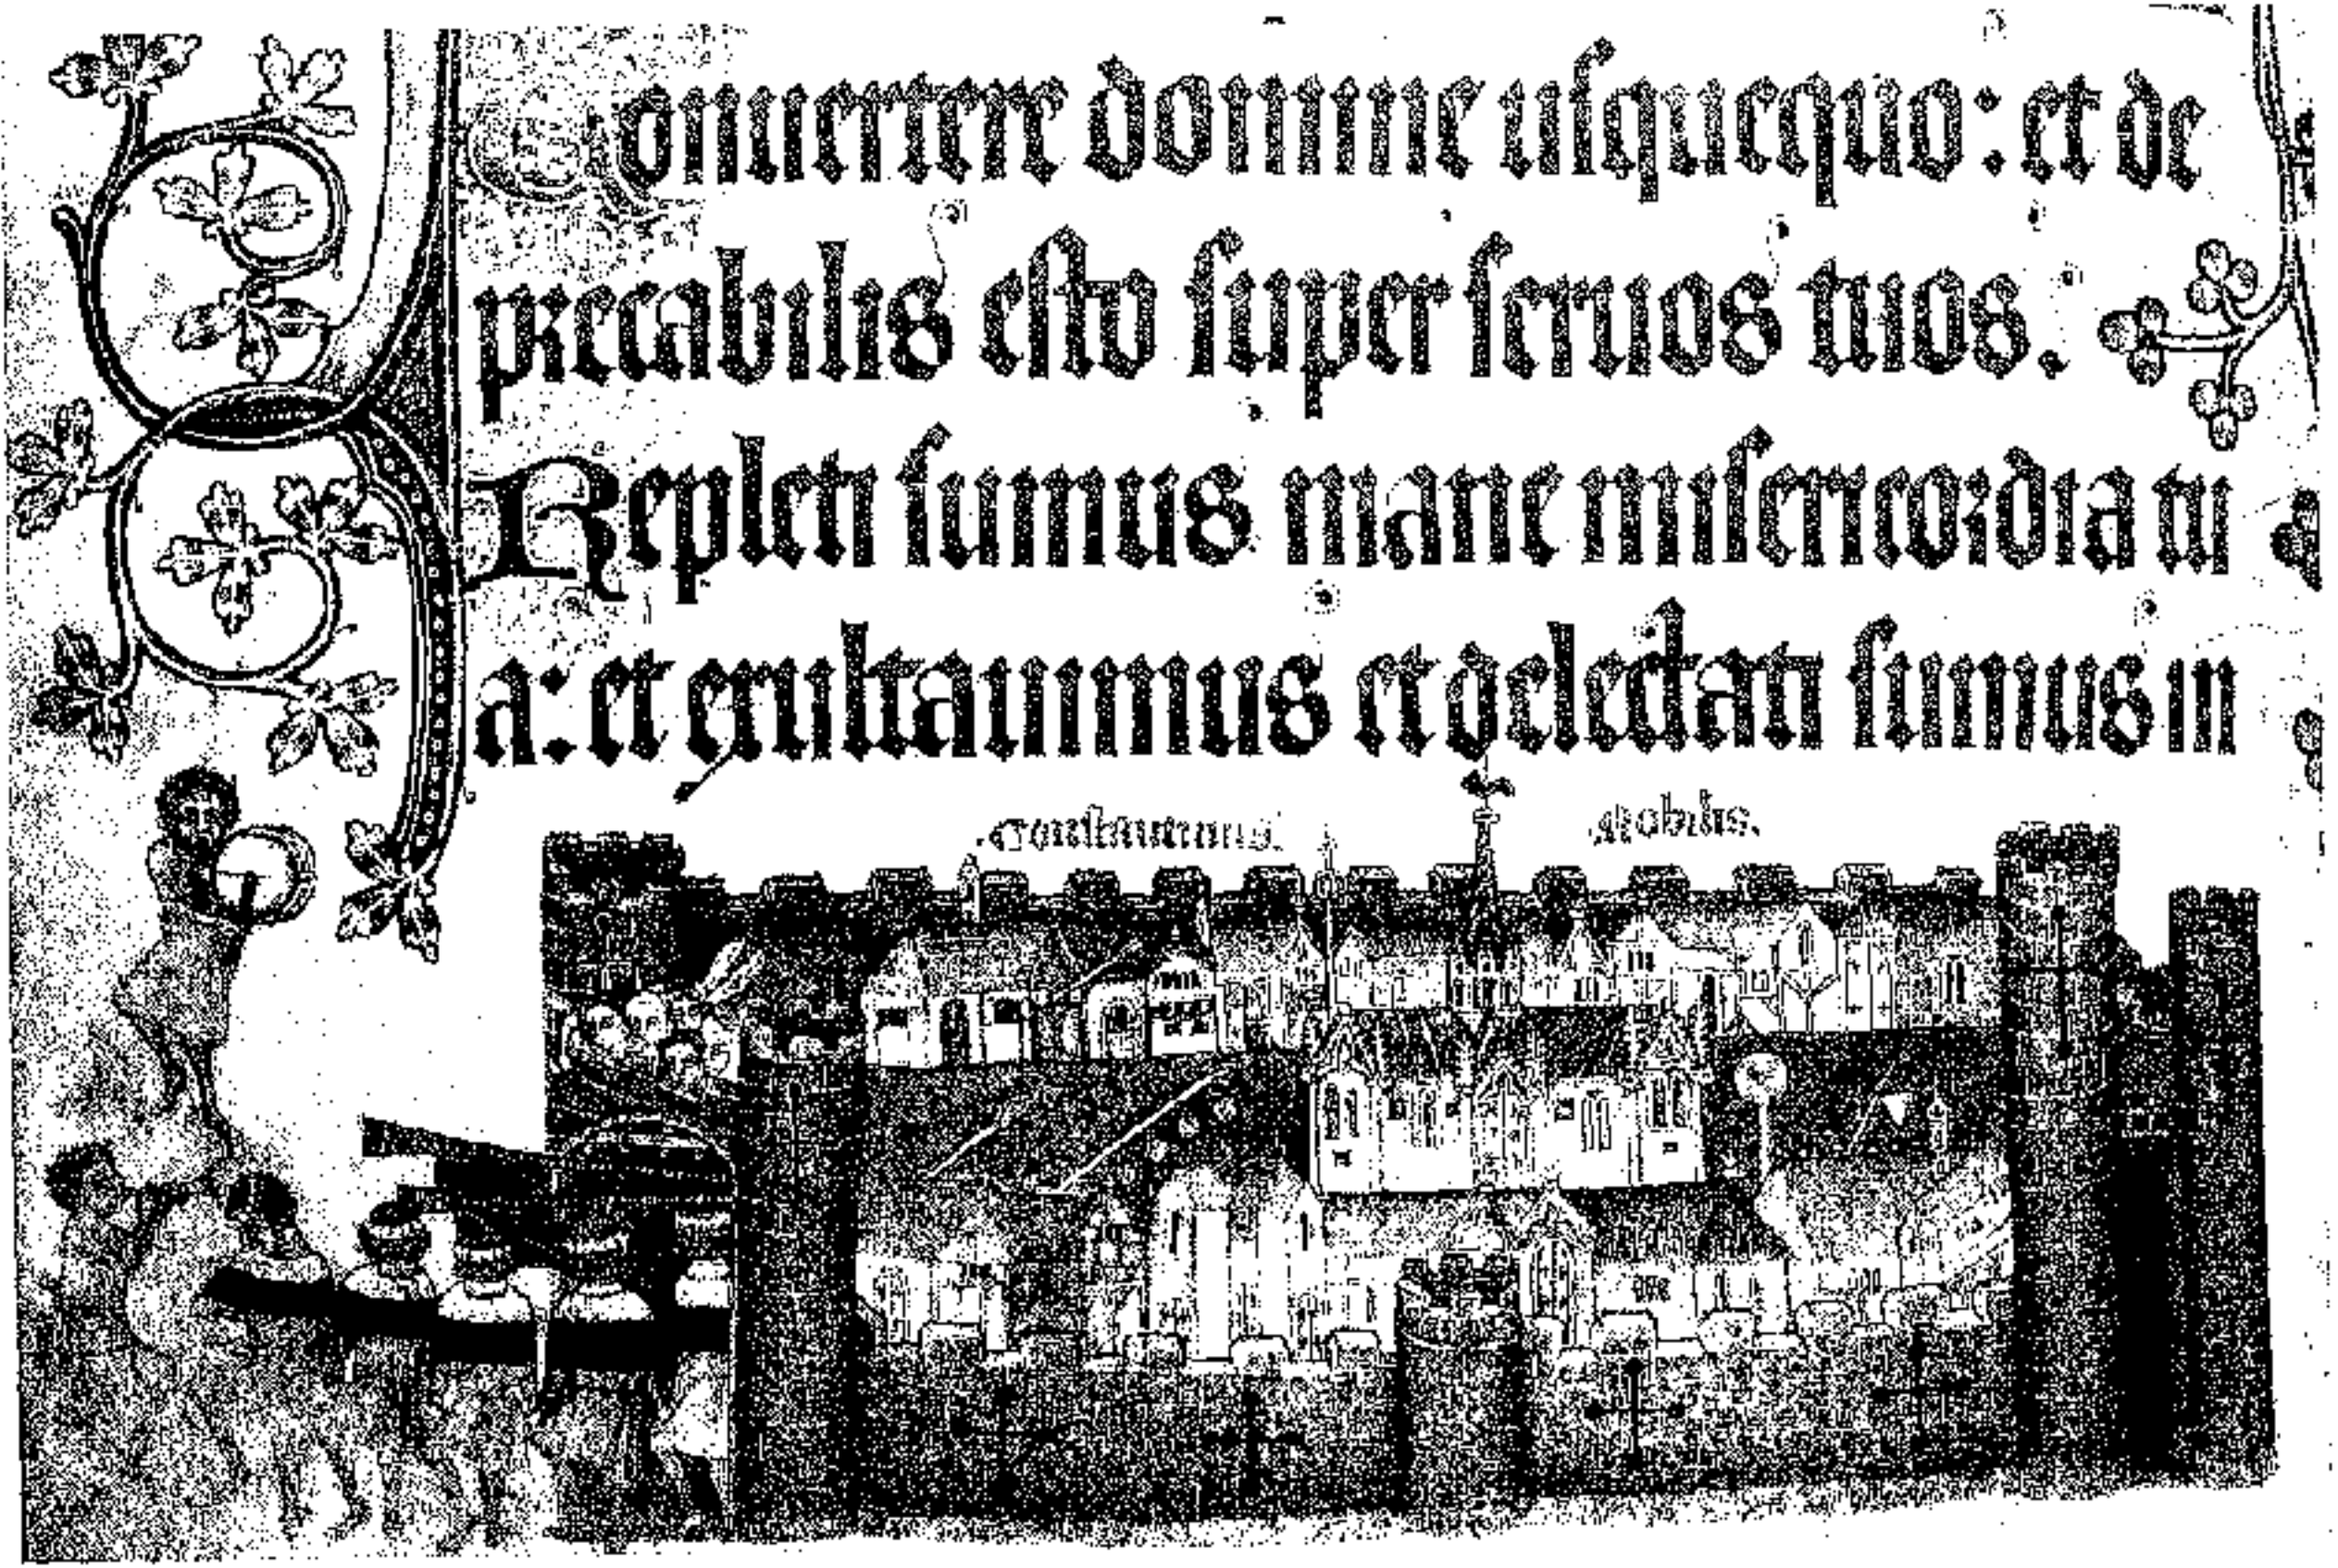 Conuertere domine usquequo: et de
precabilis esto super seruos tuos.
Repleti sumus mane misericordia tu
a: et exultauimus et delectati sumus in
Constantinus. Nobilis.